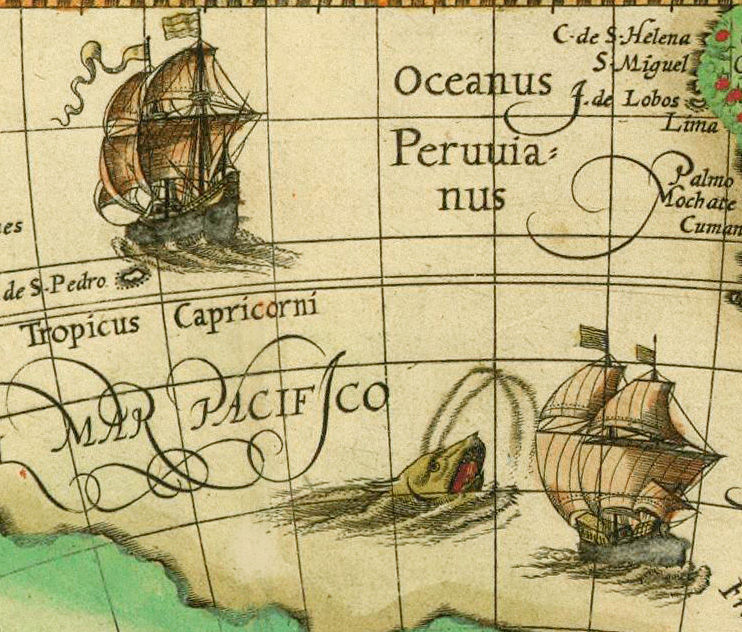 C·de S·Helena
S·Miguel
J·de Lobos
Lima
Palmo
Mochate
Cuman
Oceanus
Peruuia⸗
nus
de S·Pedro
Tropicus Capricorni
MAR PACIFICO